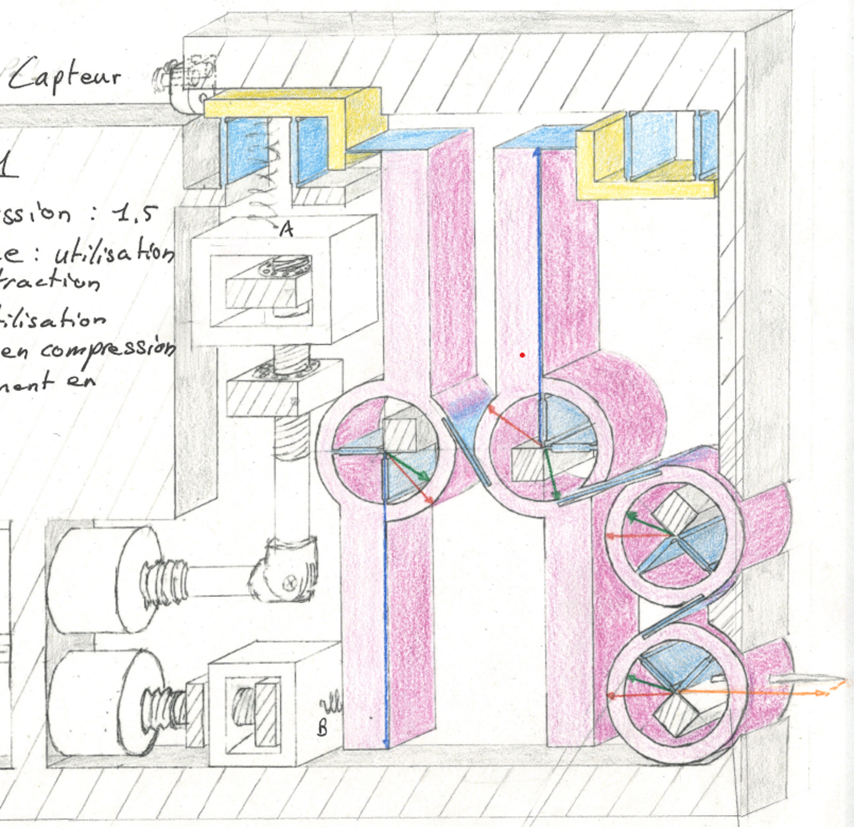 Capteur
1
ssion : 1,5
e : utilisation
traction
ilisation
en compression
ment en
A
B